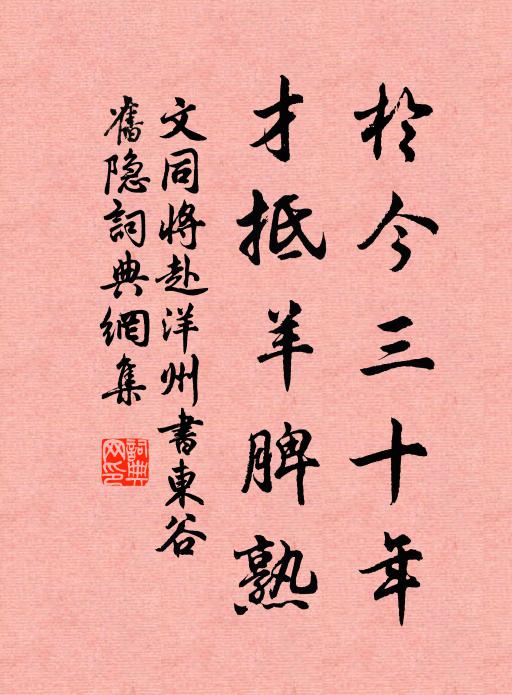 於今三十年
才抵羊脾熟
文同將赴洋州書東谷
舊隐詞典網集
詞典網印